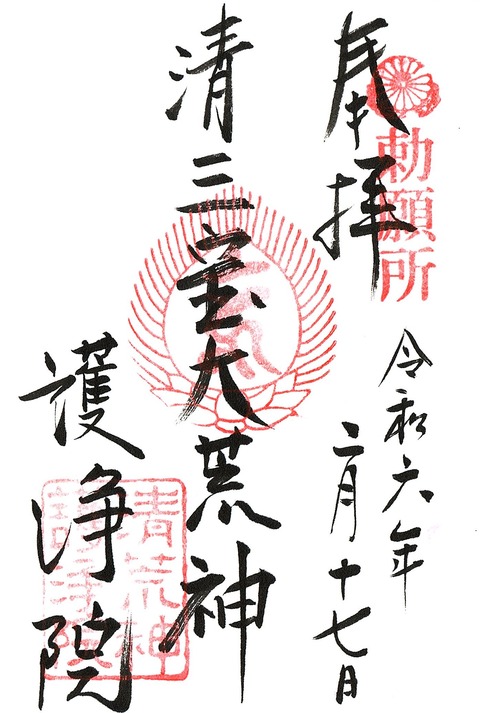 勅願所
奉拝
令和六年
二月十七日
清三宝大荒神
護浄院
清荒神
護浄院